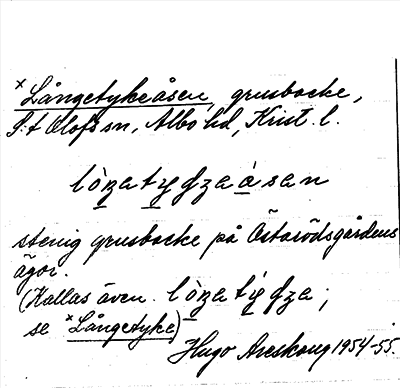 ×Långetykeåsen, grusbacke,
S:t Olofs sn, Albo hd, Krist. l.
lòŋatydzaásan
stenig grusbacke på Östarödsgårdens
ägor.
(Kallas även lòŋatýdza;
se ×Långetyke)
Hugo Areskoug 1954-55.